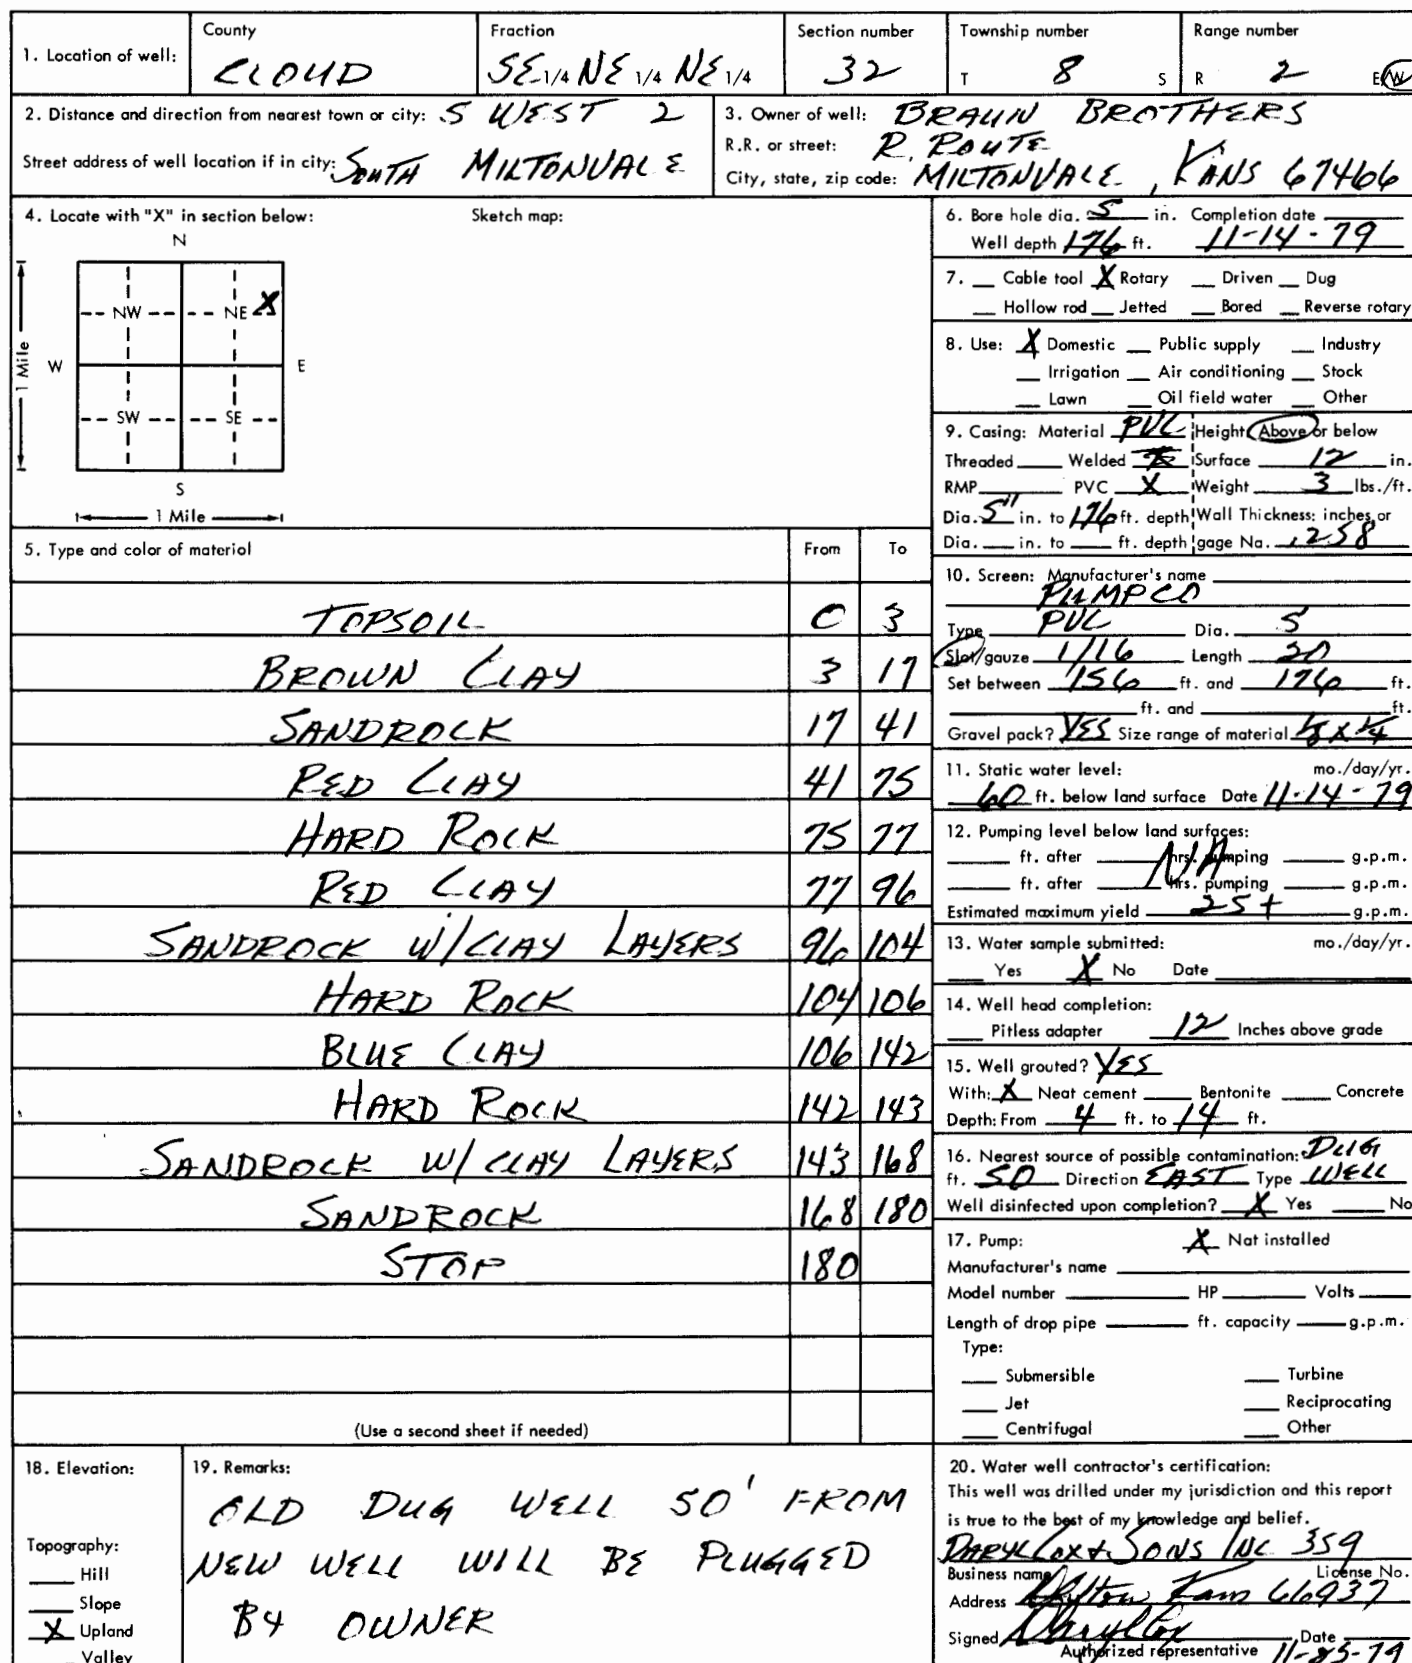 1. Location of well: County CLOUD Fraction SE 1/4 NE 1/4 NE 1/4 Section number 32 Township number T 8 S Range number R 2 E/W
2. Distance and direction from nearest town or city: S WEST 2
Street address of well location if in city: SOUTH MILTONVALE
3. Owner of well: BRAUN BROTHERS
R.R. or street: R. ROUTE
City, state, zip code: MILTONVALE, KANS 67466
4. Locate with "X" in section below: Sketch map:
N
NW NE X
1 Mile W E
SW SE
S
1 Mile
5. Type and color of material From To
TOPSOIL 0 3
BROWN CLAY 3 17
SANDROCK 17 41
RED CLAY 41 75
HARD ROCK 75 77
RED CLAY 77 96
SANDROCK W/CLAY LAYERS 96 104
HARD ROCK 104 106
BLUE CLAY 106 142
HARD ROCK 142 143
SANDROCK W/ CLAY LAYERS 143 168
SANDROCK 168 180
STOP 180
(Use a second sheet if needed)
6. Bore hole dia. 5 in. Completion date
Well depth 176 ft. 11-14-79
7. Cable tool X Rotary Driven Dug
Hollow rod Jetted Bored Reverse rotary
8. Use: X Domestic Public supply Industry
Irrigation Air conditioning Stock
Lawn Oil field water Other
9. Casing: Material PVC Height: Above or below
Threaded Welded Surface 12 in.
RMP PVC X Weight 3 lbs./ft.
Dia. 5" in. to 176 ft. depth Wall Thickness: inches or
Dia. in. to ft. depth gage No. .258
10. Screen: Manufacturer's name
PUMPCO
Type PVC Dia. 5
Slot/gauze 1/16 Length 20
Set between 156 ft. and 176 ft.
ft. and ft.
Gravel pack? YES Size range of material 1/8 X 1/4
11. Static water level: mo./day/yr.
60 ft. below land surface Date 11-14-79
12. Pumping level below land surfaces:
ft. after hrs. pumping g.p.m.
NA
ft. after hrs. pumping g.p.m.
Estimated maximum yield 25+ g.p.m.
13. Water sample submitted: mo./day/yr.
Yes X No Date
14. Well head completion:
Pitless adapter 12 Inches above grade
15. Well grouted? YES
With: X Neat cement Bentonite Concrete
Depth: From 4 ft. to 14 ft.
16. Nearest source of possible contamination: DUG
ft. 50 Direction EAST Type WELL
Well disinfected upon completion? X Yes No
17. Pump: X Not installed
Manufacturer's name
Model number HP Volts
Length of drop pipe ft. capacity g.p.m.
Type:
Submersible Turbine
Jet Reciprocating
Centrifugal Other
18. Elevation:
Topography:
Hill
Slope
X Upland
Valley
19. Remarks:
OLD DUG WELL 50' FROM
NEW WELL WILL BE PLUGGED
BY OWNER
20. Water well contractor's certification:
This well was drilled under my jurisdiction and this report
is true to the best of my knowledge and belief.
DARYL COX & SONS INC 359
Business name License No.
Address Kans 66937
Signed Daryl Cox Date
Authorized representative